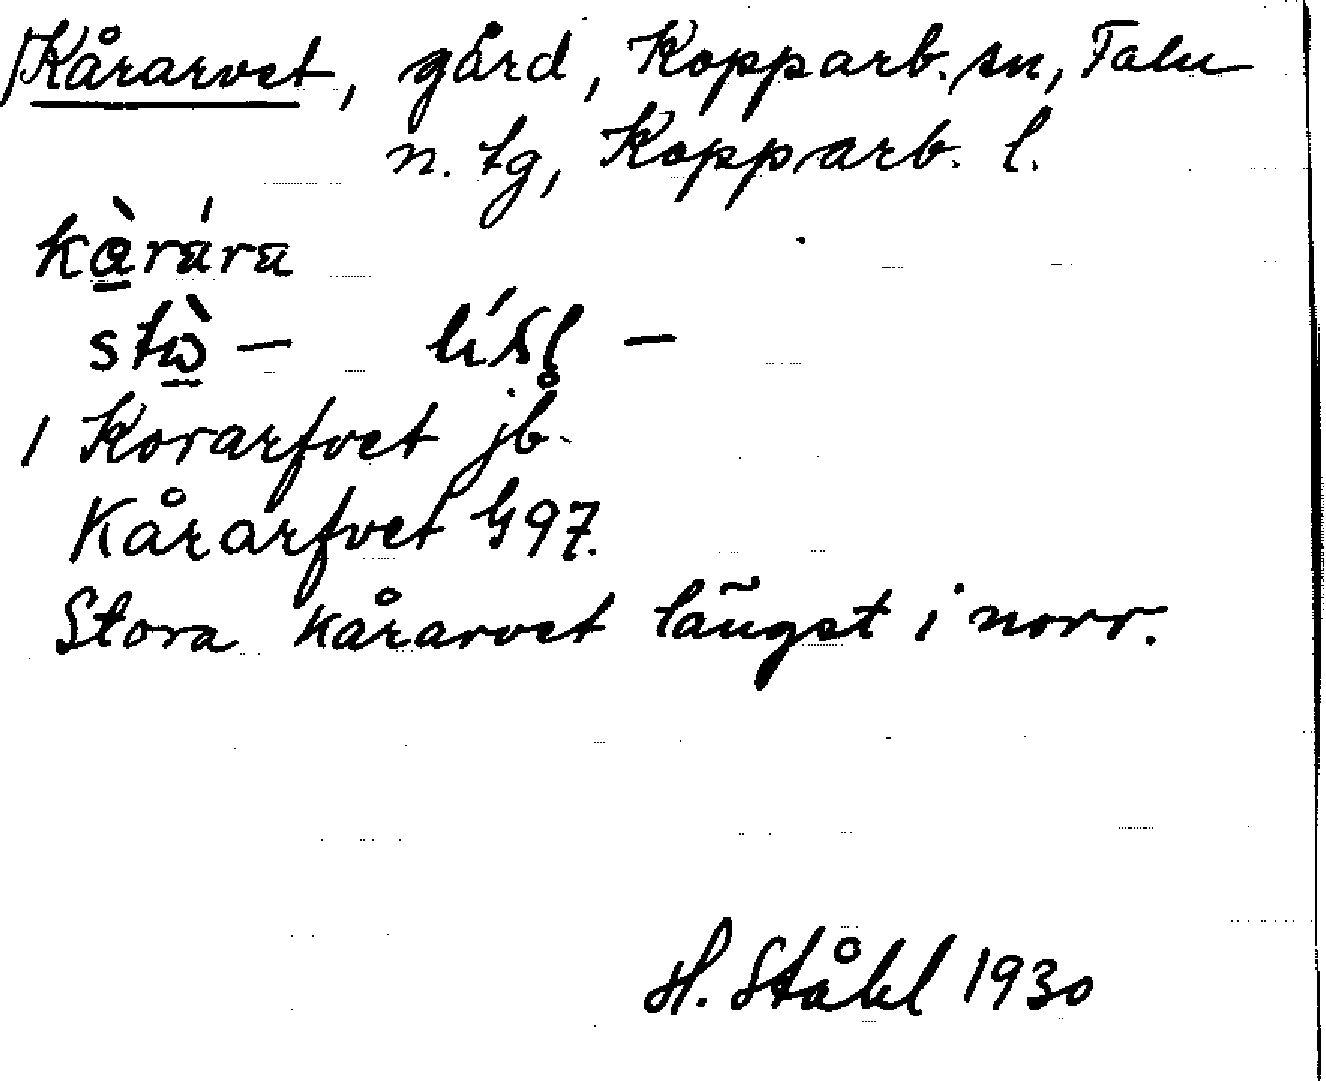 Kårarvet, gård, Kopparb. sn, Falu
n. tg, Kopparb. l.
kàrára
stò — lísl —
1 Korarfvet jb.
Kårarfvet G97.
Stora Kårarvet längst i norr.
H. Ståhl 1930